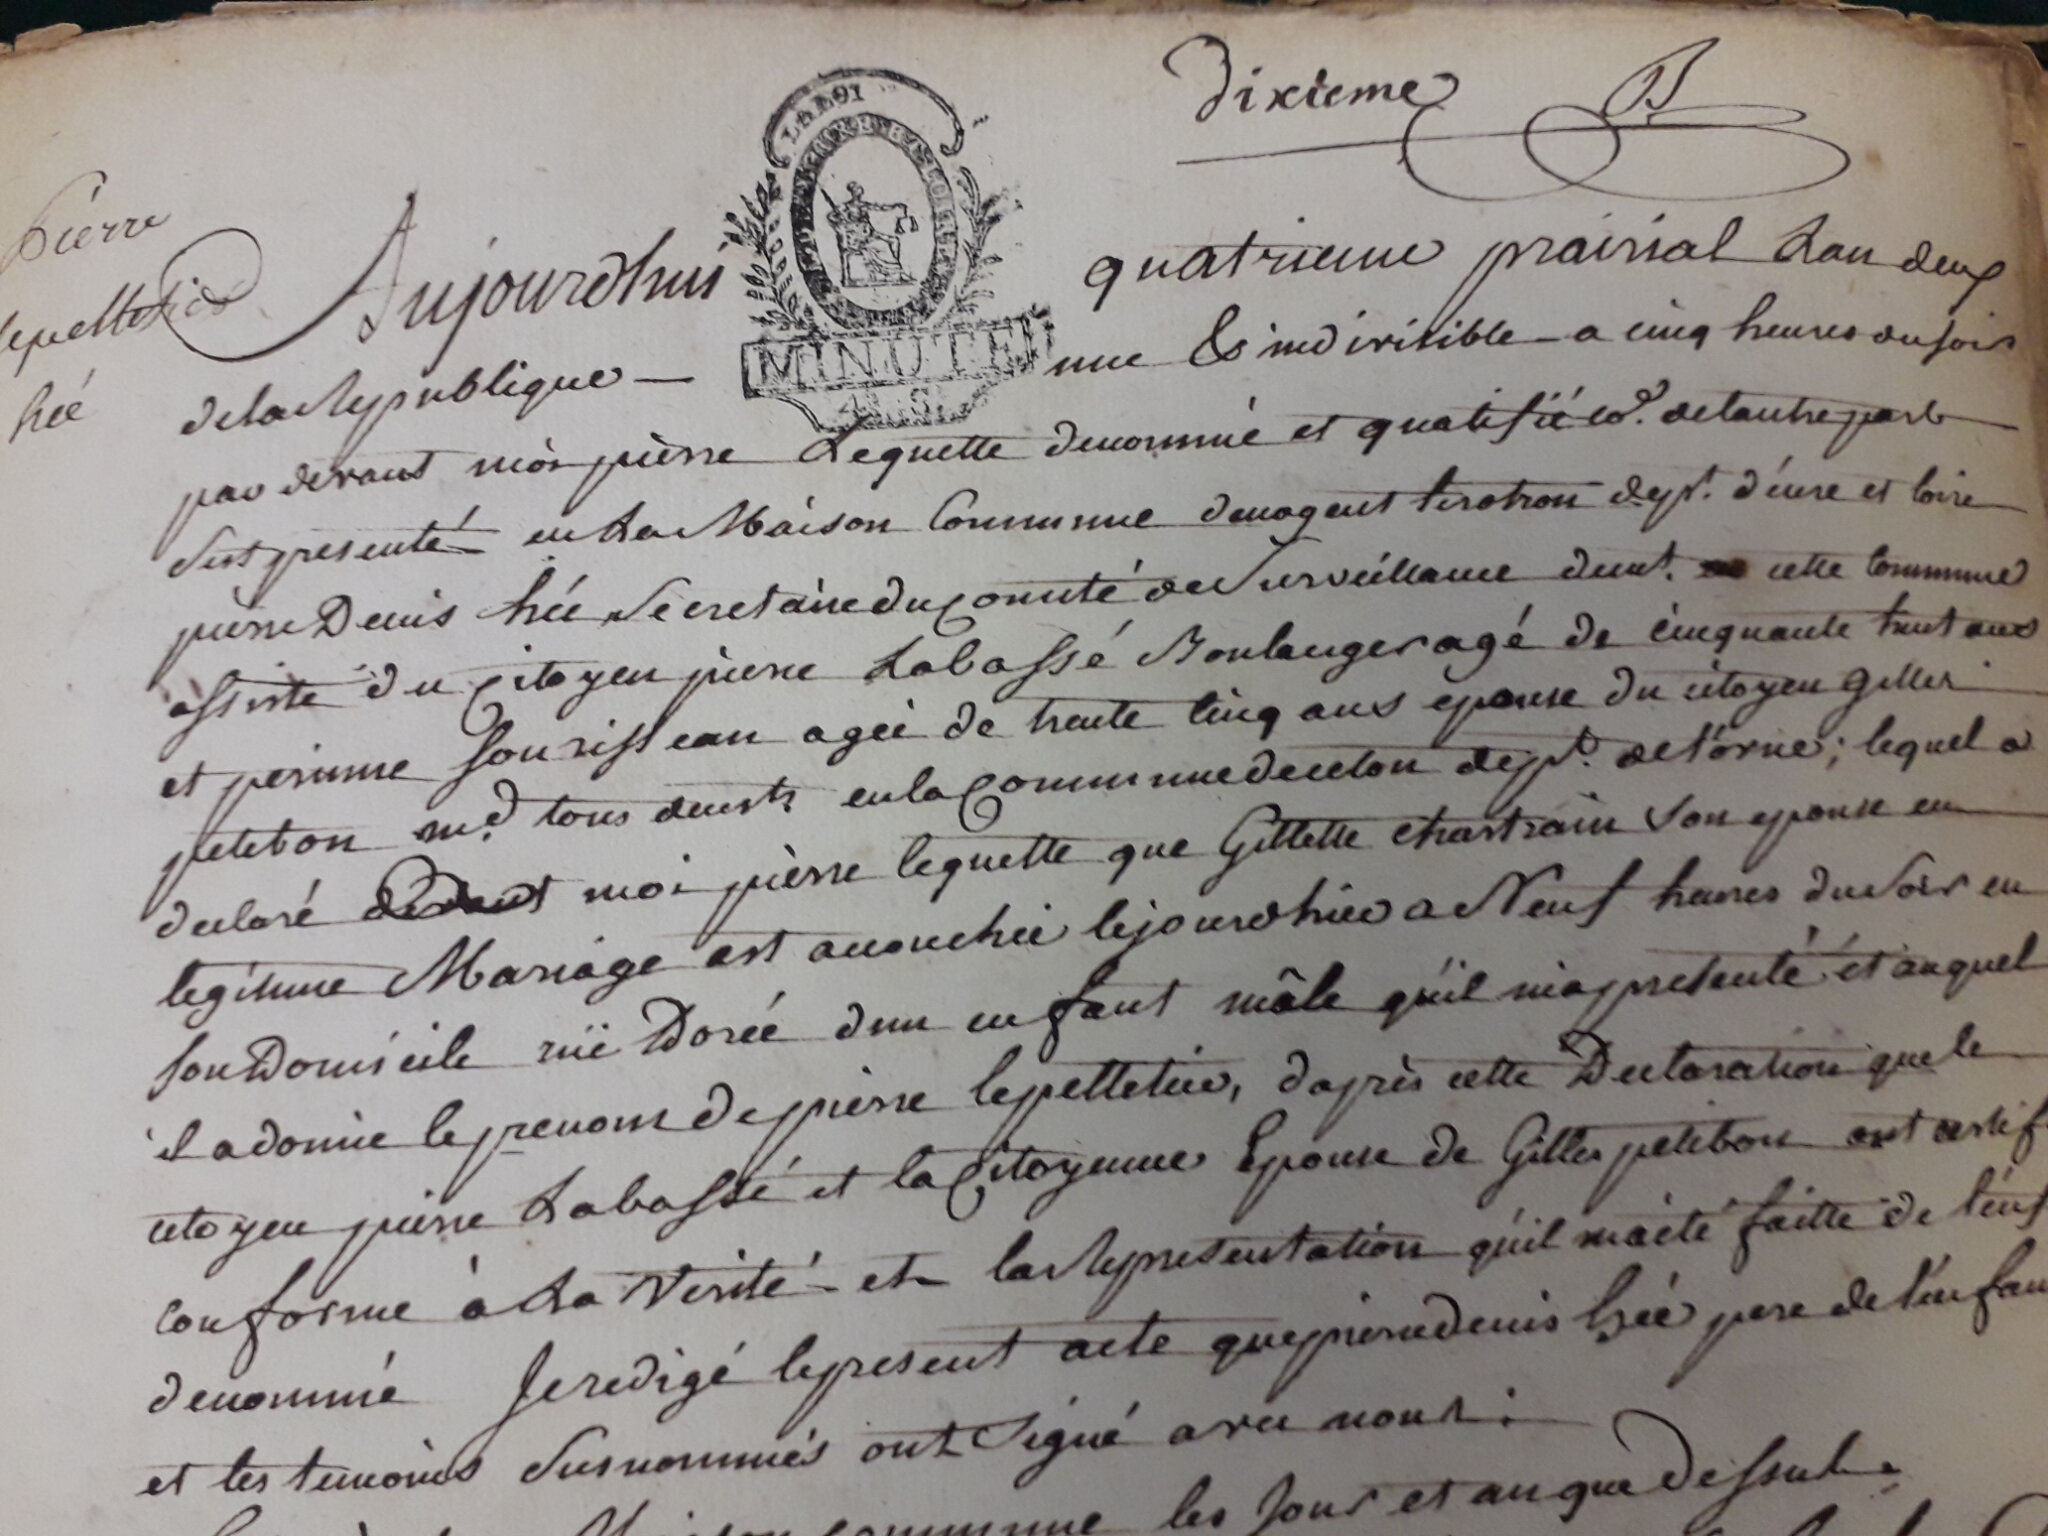 dixieme
Pierre
lepelletier
hée
LA LOI
MINUTE
Aujourdhui quatrieme prairial Lan deux
de la Republique — une & indivisible a cinq heures du soir
par devant moi pierre Lequette denommé et qualifié co.^d de lautre part
sest presenté en La Maison Commune de nogent lerotrou dep.^t d'éure et loire
pierre Denis hée Secretaire du Comité de Surveillance demt. cette Commune
assisté du Citoyen pierre Labassé Boulanger agé de cinquante huit ans
et perinne Sourisseau ageé de trente cinq ans epouse du citoyen gilles
petitbon m.^d tous demts. en la Commune de ceton dep.^t de l'orne; lequel a
declaré moi pierre lequette que Gillette chartrain Son epouse en
legitime Mariage est accouchée le jourdhier a Neuf heures du Soir en
son Domicile rüe Dorée dun enfant mâle qu'il ma presenté et auquel
il a donné le prenom de pierre lepelletier, daprès cette Declaration que le
citoyen pierre Labassé et la Citoyenne Epouse de Gilles petitbon ont certif
conforme à La Verité et la Representation qu'il m'a eté faitte de l'enf
denommé Je redigé le present acte que pierre denis hée pere de l'enfan
et les temoins Susnommés ont Signé avec nous.
Maison commune les Jour et an que Dessus